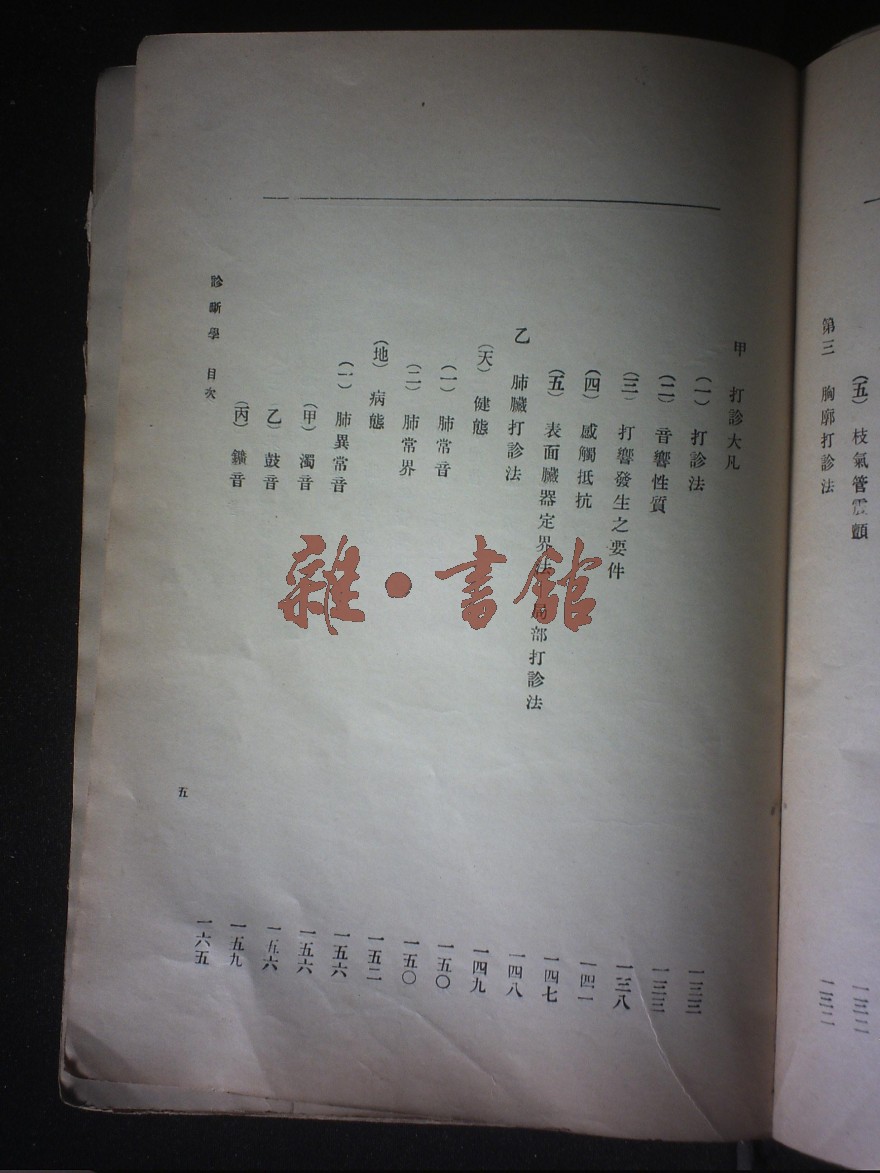 （五）枝氣管震顫 一三二
第三 胸廓打診法 一三二
甲 打診大凡 一三三
（一）打診法 一三三
（二）音響性質 一三八
（三）打響發生之要件 一四一
（四）感觸抵抗 一四七
（五）表面臟器定界法 部打診法 一四八
乙 肺臟打診法 一四九
（天）健態 一五〇
（一）肺常音 一五〇
（二）肺常界 一五二
（地）病態 一五六
（一）肺異常音 一五六
（甲）濁音 一五六
（乙）鼓音 一五九
（丙）鑛音 一六五
診斷學 目次 五
雜·書館